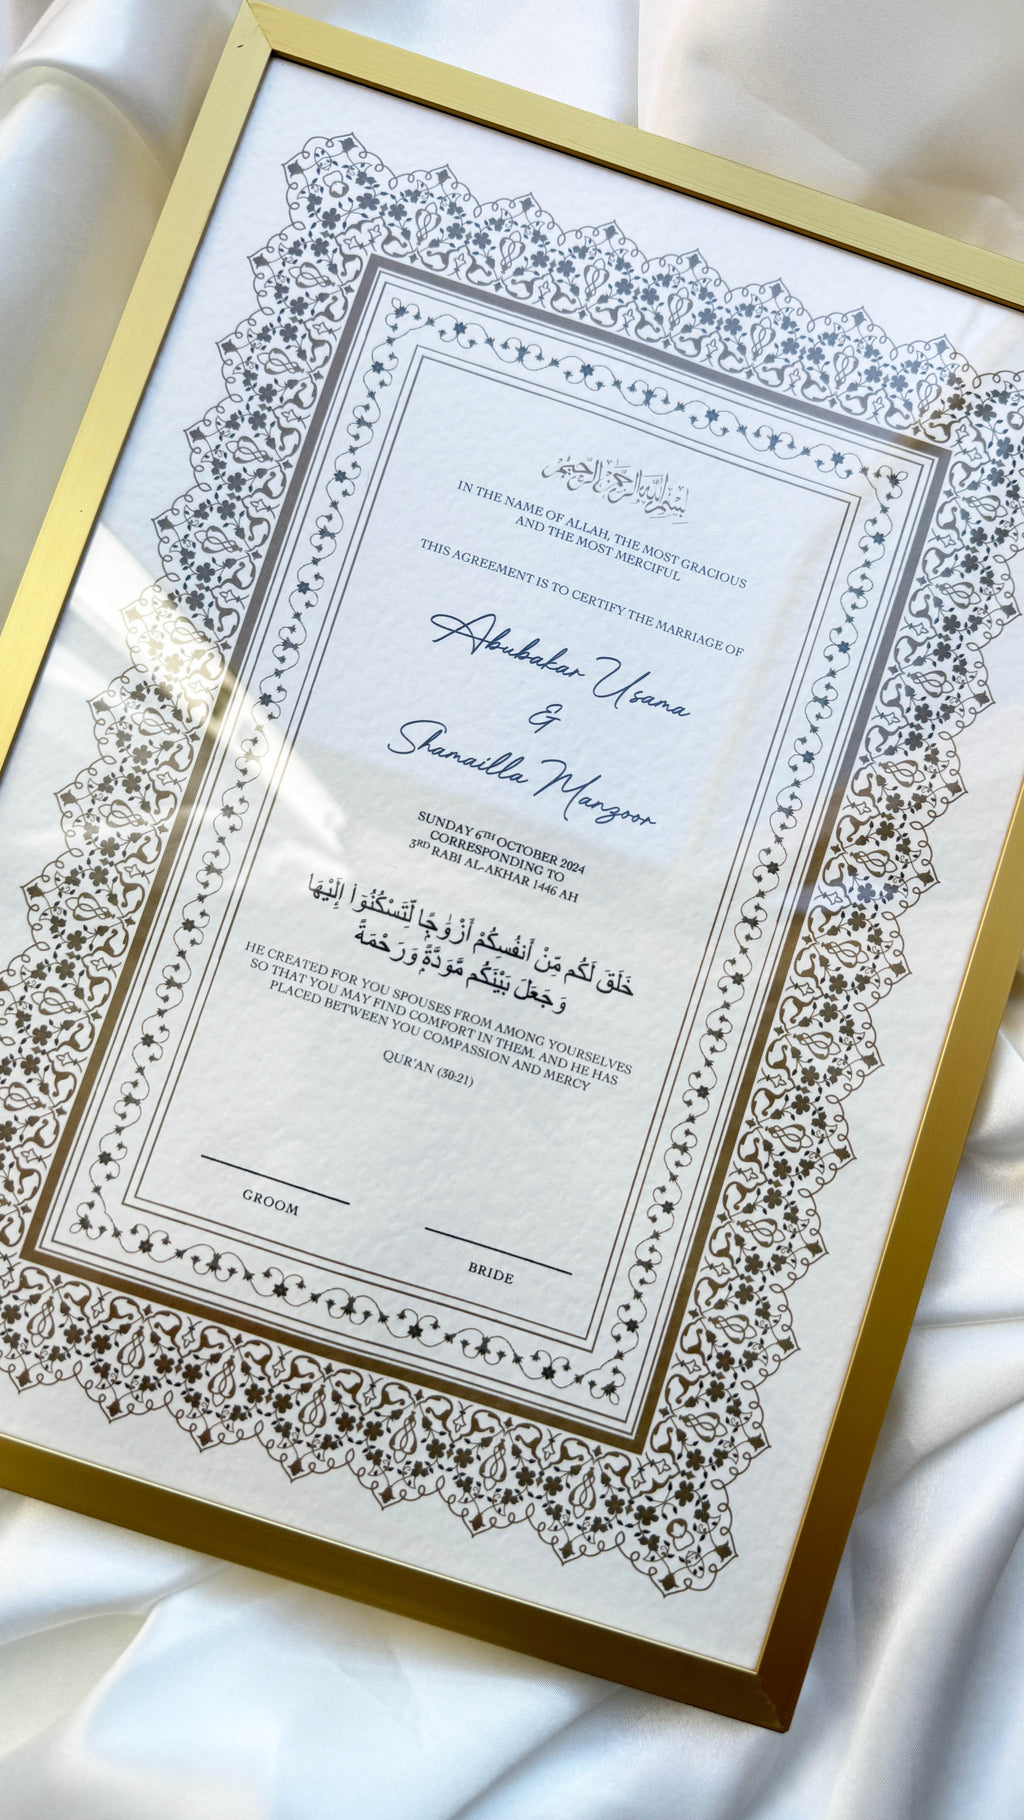 بِسْمِ اللَّهِ الرَّحْمَنِ الرَّحِيمِ
IN THE NAME OF ALLAH, THE MOST GRACIOUS
AND THE MOST MERCIFUL
THIS AGREEMENT IS TO CERTIFY THE MARRIAGE OF
Abubakar Usama
&
Shamailla Manzoor
SUNDAY 6TH OCTOBER 2024
CORRESPONDING TO
3RD RABI AL-AKHAR 1446 AH
خَلَقَ لَكُم مِّنْ أَنفُسِكُمْ أَزْوَٰجًا لِّتَسْكُنُوٓا۟ إِلَيْهَا
وَجَعَلَ بَيْنَكُم مَّوَدَّةً وَرَحْمَةً
HE CREATED FOR YOU SPOUSES FROM AMONG YOURSELVES
SO THAT YOU MAY FIND COMFORT IN THEM. AND HE HAS
PLACED BETWEEN YOU COMPASSION AND MERCY
QUR'AN (30:21)
GROOM
BRIDE